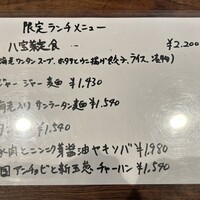 限定ランチメニュー
八宝菜定食 ¥2,200
海老ワンタンスープ、ホタテとウニ揚げ餃子、ライス、
ジャージャー麺 ¥1,430
海老入りサンラータン麺 ¥1,540
肉とニンニク芽醤油ヤキソバ ¥1,980
国アンチョビと新玉葱チャーハン ¥1,540